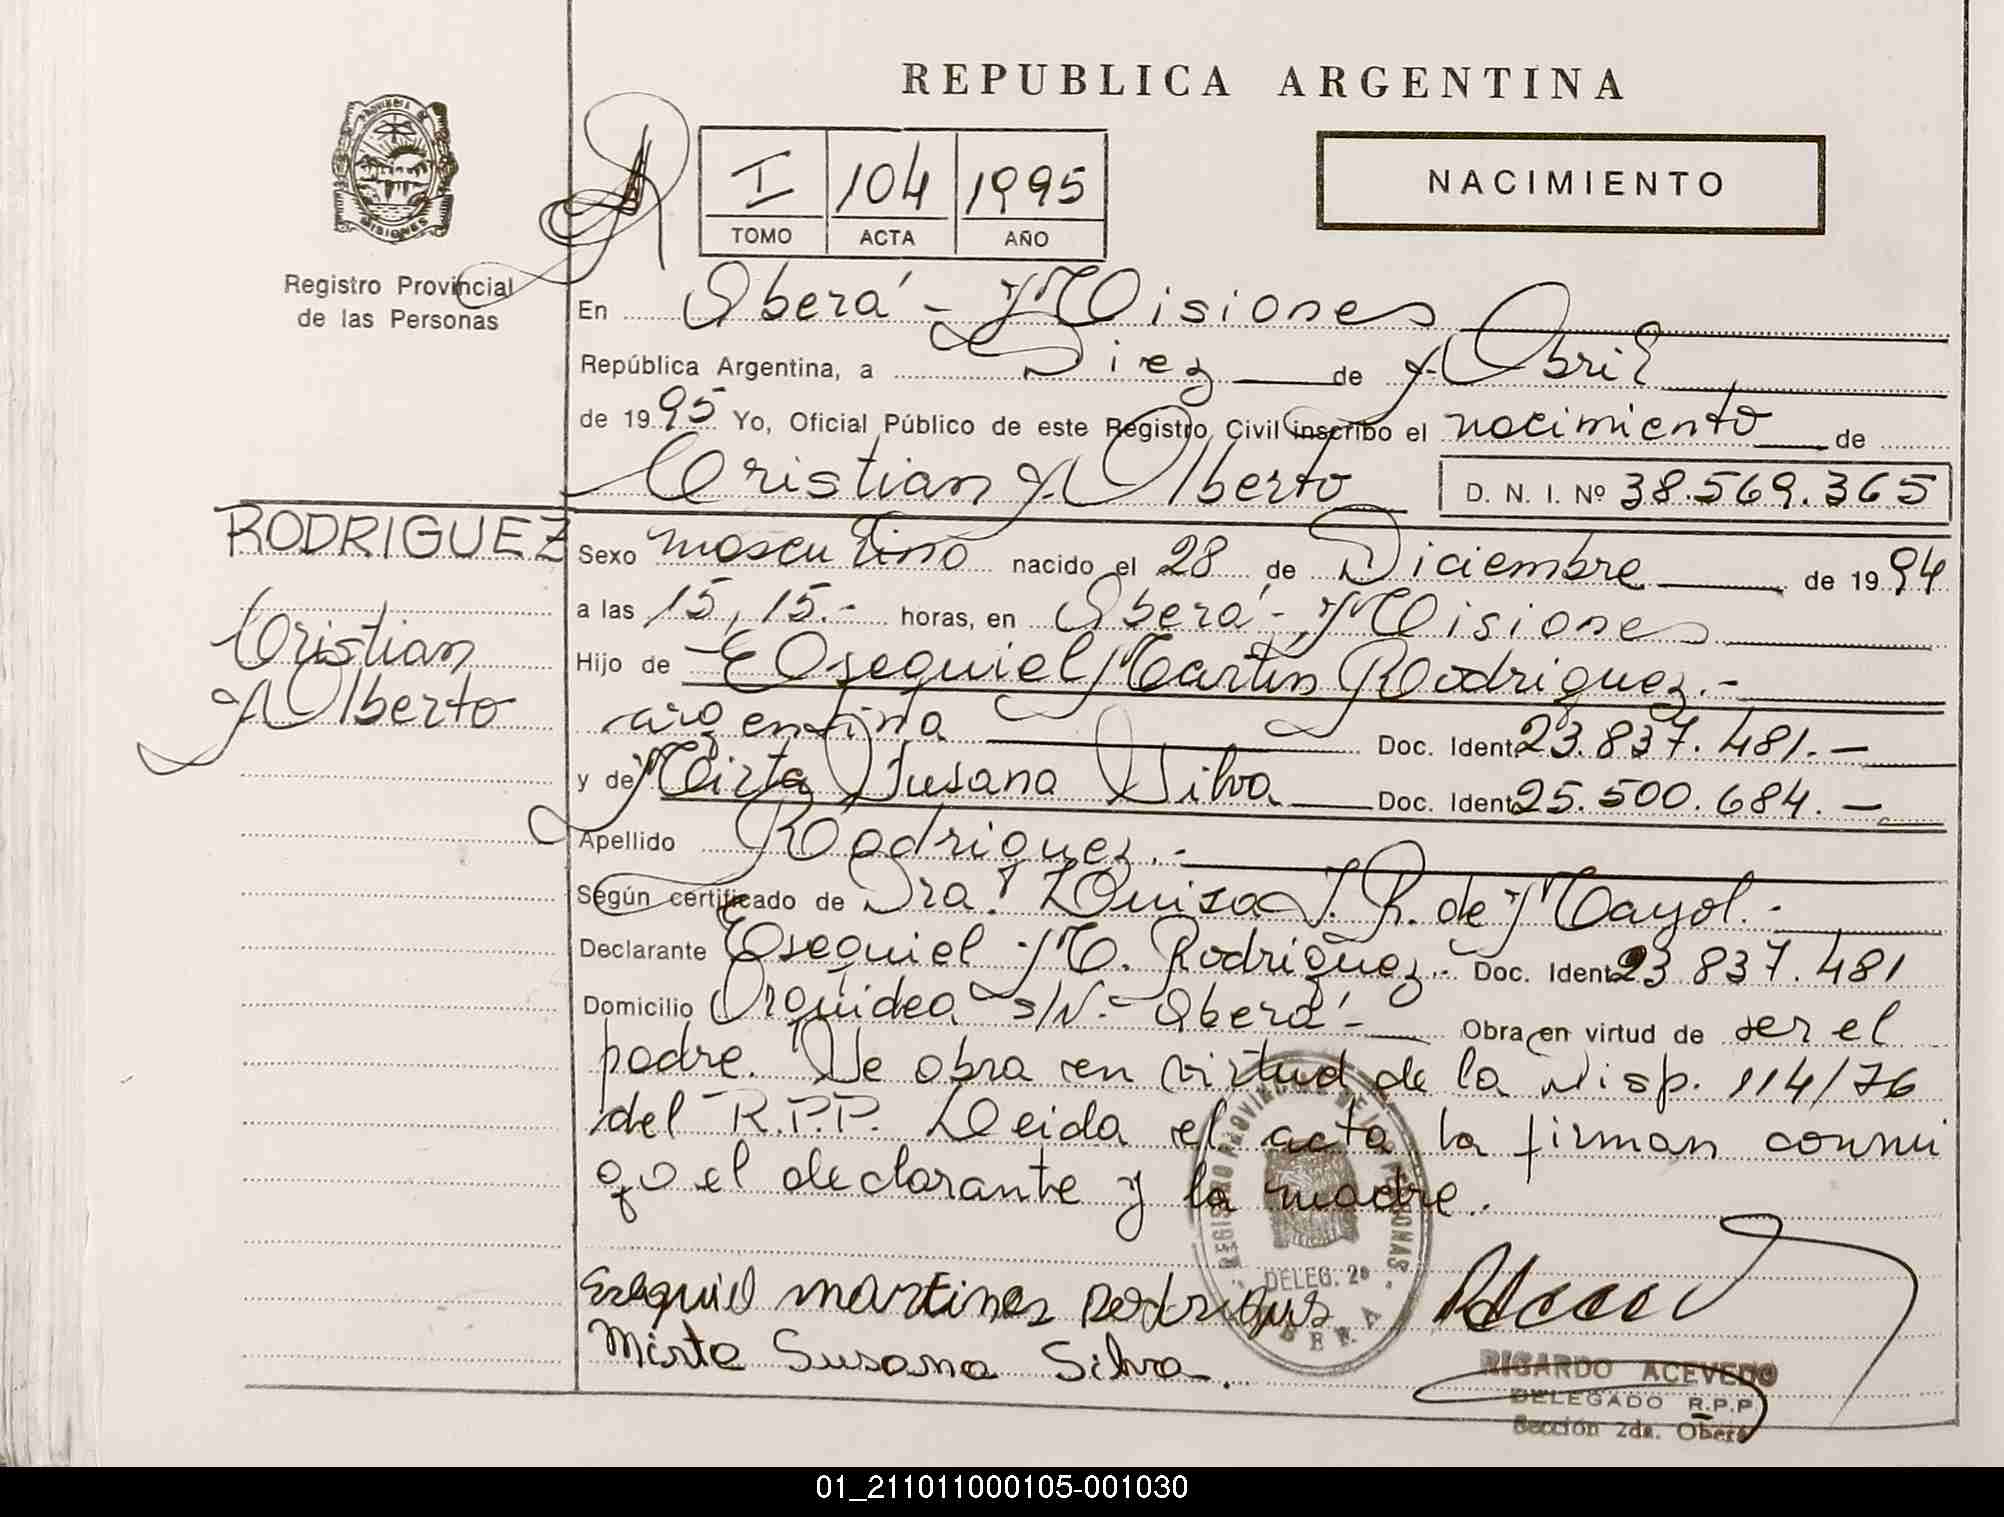 REPUBLICA ARGENTINA
NACIMIENTO
I 104 1995
TOMO ACTA AÑO
PROVINCIA DE
MISIONES
Registro Provincial
de las Personas
En Oberá - Misiones
República Argentina, a Diez de Abril
de 1995 Yo, Oficial Público de este Registro Civil inscribo el nacimiento de
Cristian Alberto D. N. I. Nº 38.569.365
RODRIGUEZ
Cristian
Alberto
Sexo masculino nacido el 28 de Diciembre de 1994
a las 15,15.- horas, en Oberá - Misiones
Hijo de Esequiel Martin Rodriguez.-
argentina Doc. Ident. 23.837.481.-
y de Mirta Susana Silva Doc. Ident. 25.500.684.-
Apellido Rodriguez.-
Según certificado de Dra. Luisa J. R. de Mayol.-
Declarante Esequiel M. Rodriguez.- Doc. Ident. 23.837.481
Domicilio Orquidea s/N.- Oberá - Obra en virtud de ser el
padre. Se obra en virtud de la Disp. 114/76
del R.P.P. Leida el acta la firman conmi
go el declarante y la madre.
REGISTRO PROVINCIAL DE LAS PERSONAS
DELEG. 2ª
OBERA
Esequiel martines Rodrigus
Mirta Susana Silva.
RICARDO ACEVEDO
DELEGADO R.P.P.
Sección 2da. Oberá
01_211011000105-001030